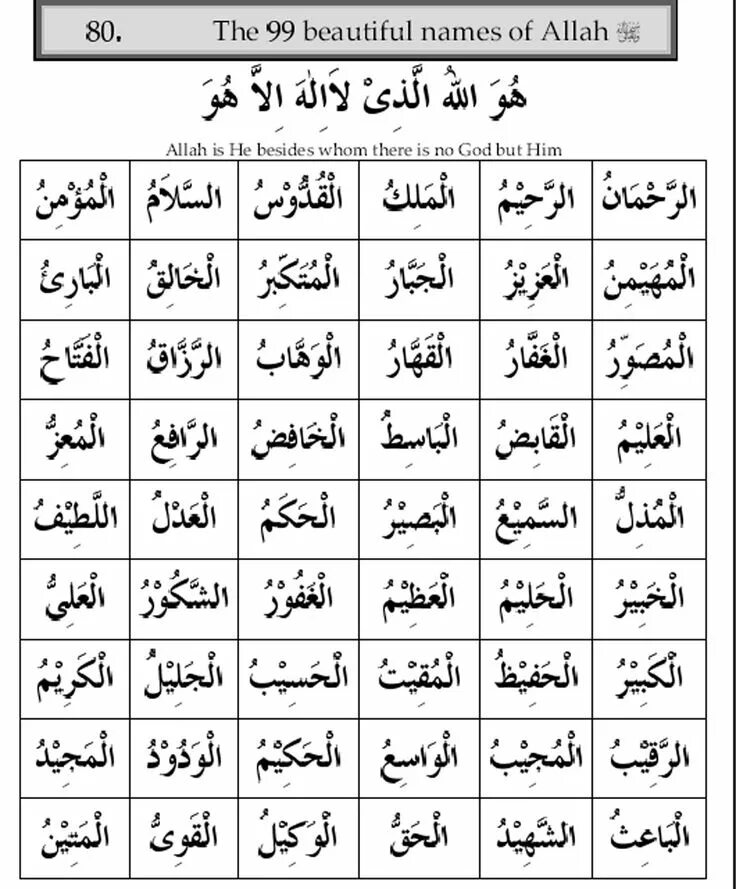 80. The 99 beautiful names of Allah ﷻ
هُوَ اللهُ الَّذِىْ لَااِلٰهَ اِلاَّ هُوَ
Allah is He besides whom there is no God but Him
الرَّحْمَانُ الرَّحِيْمُ الْمَلِكُ الْقُدُّوْسُ السَّلاَمُ الْمُؤْمِنُ
الْمُهَيْمِنُ الْعَزِيْزُ الْجَبَّارُ الْمُتَكَبِّرُ الْخَالِقُ الْبَارِئُ
الْمُصَوِّرُ الْغَفَّارُ الْقَهَّارُ الْوَهَّابُ الرَّزَّاقُ الْفَتَّاحُ
الْعَلِيْمُ الْقَابِضُ الْبَاسِطُ الْخَافِضُ الرَّافِعُ الْمُعِزُّ
الْمُذِلُّ السَّمِيْعُ الْبَصِيْرُ الْحَكَمُ الْعَدْلُ اللَّطِيْفُ
الْخَبِيْرُ الْحَلِيْمُ الْعَظِيْمُ الْغَفُوْرُ الشَّكُوْرُ الْعَلِيُّ
الْكَبِيْرُ الْحَفِيْظُ الْمُقِيْتُ الْحَسِيْبُ الْجَلِيْلُ الْكَرِيْمُ
الرَّقِيْبُ الْمُجِيْبُ الْوَاسِعُ الْحَكِيْمُ الْوَدُوْدُ الْمَجِيْدُ
الْبَاعِثُ الشَّهِيْدُ الْحَقُّ الْوَكِيْلُ الْقَوِىُّ الْمَتِيْنُ